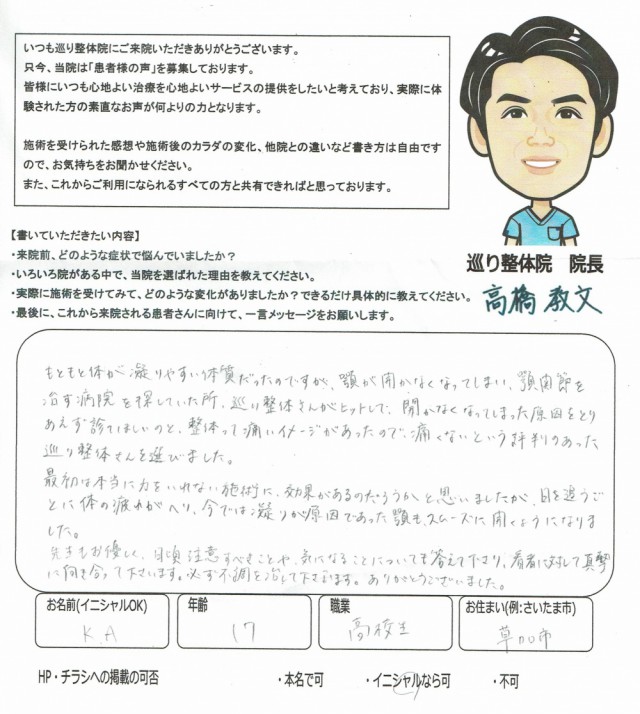 いつも巡り整体院にご来院いただきありがとうございます。
只今、当院は「患者様の声」を募集しております。
皆様にいつも心地よい治療を心地よいサービスの提供をしたいと考えており、実際に体
験された方の素直なお声が何よりの力となります。
施術を受けられた感想や施術後のカラダの変化、他院との違いなど書き方は自由です
ので、お気持ちをお聞かせください。
また、これからご利用になられるすべての方と共有できればと思っております。
【書いていただきたい内容】
・来院前、どのような症状で悩んでいましたか？
・いろいろ院がある中で、当院を選ばれた理由を教えてください。
・実際に施術を受けてみて、どのような変化がありましたか？できるだけ具体的に教えてください。
・最後に、これから来院される患者さんに向けて、一言メッセージをお願いします。
巡り整体院 院長
高橋 教文
もともと体が凝りやすい体質だったのですが、顎が開かなくなってしまい、顎関節を
治す病院を探していた所、巡り整体さんがヒットして、開かなくなってしまった原因をとり
あえず診てほしいのと、整体って痛いイメージがあったので、痛くないという評判のあった
巡り整体さんを選びました。
最初は本当に力をいれない施術に、効果があるのだろうかと、思いましたが、日を追うご
とに体の疲れがへり、今では凝りが原因であった顎も、スムーズに開くようになりま
した。
先生もお優しく、日頃注意すべきことや、気になることについても答えて下さり、患者に対して真摯
に向き合って下さいます。必ず不調を治して下さります。ありがとうございました。
お名前(イニシャルOK)
K.A
年齢
17
職業
高校生
お住まい(例:さいたま市)
草加市
HP・チラシへの掲載の可否 ・本名で可 ・イニシャルなら可 ・不可